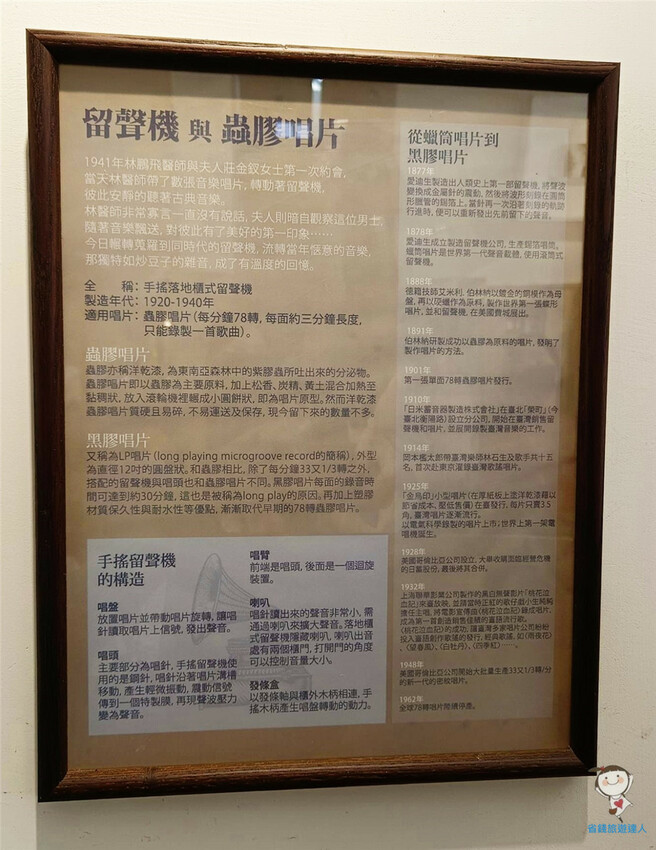 留聲機 與 蟲膠唱片
1941年林鵬飛醫師與夫人莊金釵女士第一次約會,
當天林醫師帶了數張音樂唱片, 轉動著留聲機,
彼此安靜的聽著古典音樂。
林醫師非常寡言一直沒有說話, 夫人則暗自觀察這位男士,
隨著音樂飄送, 對彼此有了美好的第一印象……
今日輾轉蒐羅到同時代的留聲機, 流轉當年愜意的音樂,
那獨特如炒豆子的雜音, 成了有溫度的回憶。
全　　稱: 手搖落地櫃式留聲機
製造年代: 1920-1940年
適用唱片: 蟲膠唱片 (每分鐘78轉, 每面約三分鐘長度,
只能錄製一首歌曲)。
蟲膠唱片
蟲膠亦稱洋乾漆, 為東南亞森林中的紫膠蟲所吐出來的分泌物。
蟲膠唱片即以蟲膠為主要原料, 加上松香、炭精、黃土混合加熱至
黏稠狀, 放入滾輪機裡輾成小圓餅狀, 即為唱片原型。然而洋乾漆
蟲膠唱片質硬且易碎, 不易運送及保存, 現今留下來的數量不多。
黑膠唱片
又稱為LP唱片 (long playing microgroove record的簡稱), 外型
為直徑12吋的圓盤狀。和蟲膠相比, 除了每分鐘33又1/3轉之外,
搭配的留聲機與唱頭也和蟲膠唱片不同。黑膠唱片每面的錄音時
間可達到約30分鐘, 這也是被稱為long play的原因。再加上塑膠
材質保久性與耐水性等優點, 漸漸取代早期的78轉蟲膠唱片。
手搖留聲機
的構造
唱盤
放置唱片並帶動唱片旋轉, 讓唱
針讀取唱片上信號, 發出聲音。
唱頭
主要部分為唱針, 手搖留聲機使
用的是鋼針, 唱針沿著唱片溝槽
移動, 產生輕微振動, 震動信號
傳到一個特製膜, 再現聲波壓力
變為聲音。
唱臂
前端是唱頭, 後面是一個迴旋
裝置。
喇叭
唱針讀出來的聲音非常小, 需
通過喇叭來擴大聲音。落地櫃
式留聲機隱藏喇叭, 喇叭出音
處有兩個櫃門, 打開門的角度
可以控制音量大小。
發條盒
以發條軸與櫃外木柄相連, 手
搖木柄產生唱盤轉動的動力。
從蠟筒唱片到
黑膠唱片
1877年
愛迪生製造出人類史上第一部留聲機, 將聲波
變換成金屬針的震動, 然後將波形刻錄在圓筒
形臘管的錫箔上。當針再一次沿著刻錄的軌跡
行進時, 便可以重新發出先前留下的聲音。
1878年
愛迪生成立製造留聲機公司, 生產錫箔唱筒。
蠟筒唱片是世界第一代聲音載體, 使用滾筒式
留聲機。
1888年
德籍技師艾米利. 伯林納以鍍金的銅模作為母
盤, 再以硬蠟作為原料, 製作世界第一張蝶形
唱片, 並和留聲機, 在美國費城展出。
1891年
伯林納研製成功以蟲膠為原料的唱片, 發明了
製作唱片的方法。
1901年
第一張單面78轉蟲膠唱片發行。
1910年
「日米蓄音器製造株式會社」在臺北「榮町」(今
臺北衡陽路) 設立分公司, 開始在臺灣銷售留
聲機和唱片, 並展開錄製臺灣音樂的工作。
1914年
岡本檻太郎帶臺灣樂師林石生及歌手共十五
名, 首次赴東京灌錄臺灣歌謠唱片。
1925年
「金鳥印」小型唱片 (在厚紙板上塗洋乾漆藉以
節省成本, 壓低售價) 在臺發行, 每片只賣3.5
角。臺灣唱片逐漸流行。
以電氣科學錄製的唱片上市; 世界上第一架電
唱機誕生。
1928年
美國哥倫比亞公司設立, 大舉收購面臨經營危機
的日蓄股份, 最後將其合併。
1932年
上海聯華影業公司製作的黑白無聲影片「桃花泣
血記」來臺放映, 並請當時正紅的歌仔戲小生純純
責任主唱, 將電影宣傳曲〈桃花泣血記〉錄成唱片,
成為第一首創造銷售佳績的臺語流行歌。
〈桃花泣血記〉的成功, 讓臺灣多家唱片公司紛紛
投入臺語創作歌謠的發行, 經典歌謠, 如〈雨夜花〉
、〈望春風〉、〈白牡丹〉、〈四季紅〉……。
1948年
美國哥倫比亞公司開始大批量生產33又1/3轉/分
的新一代的密紋唱片。
1962年
全球78轉唱片陸續停產。
省錢旅遊達人